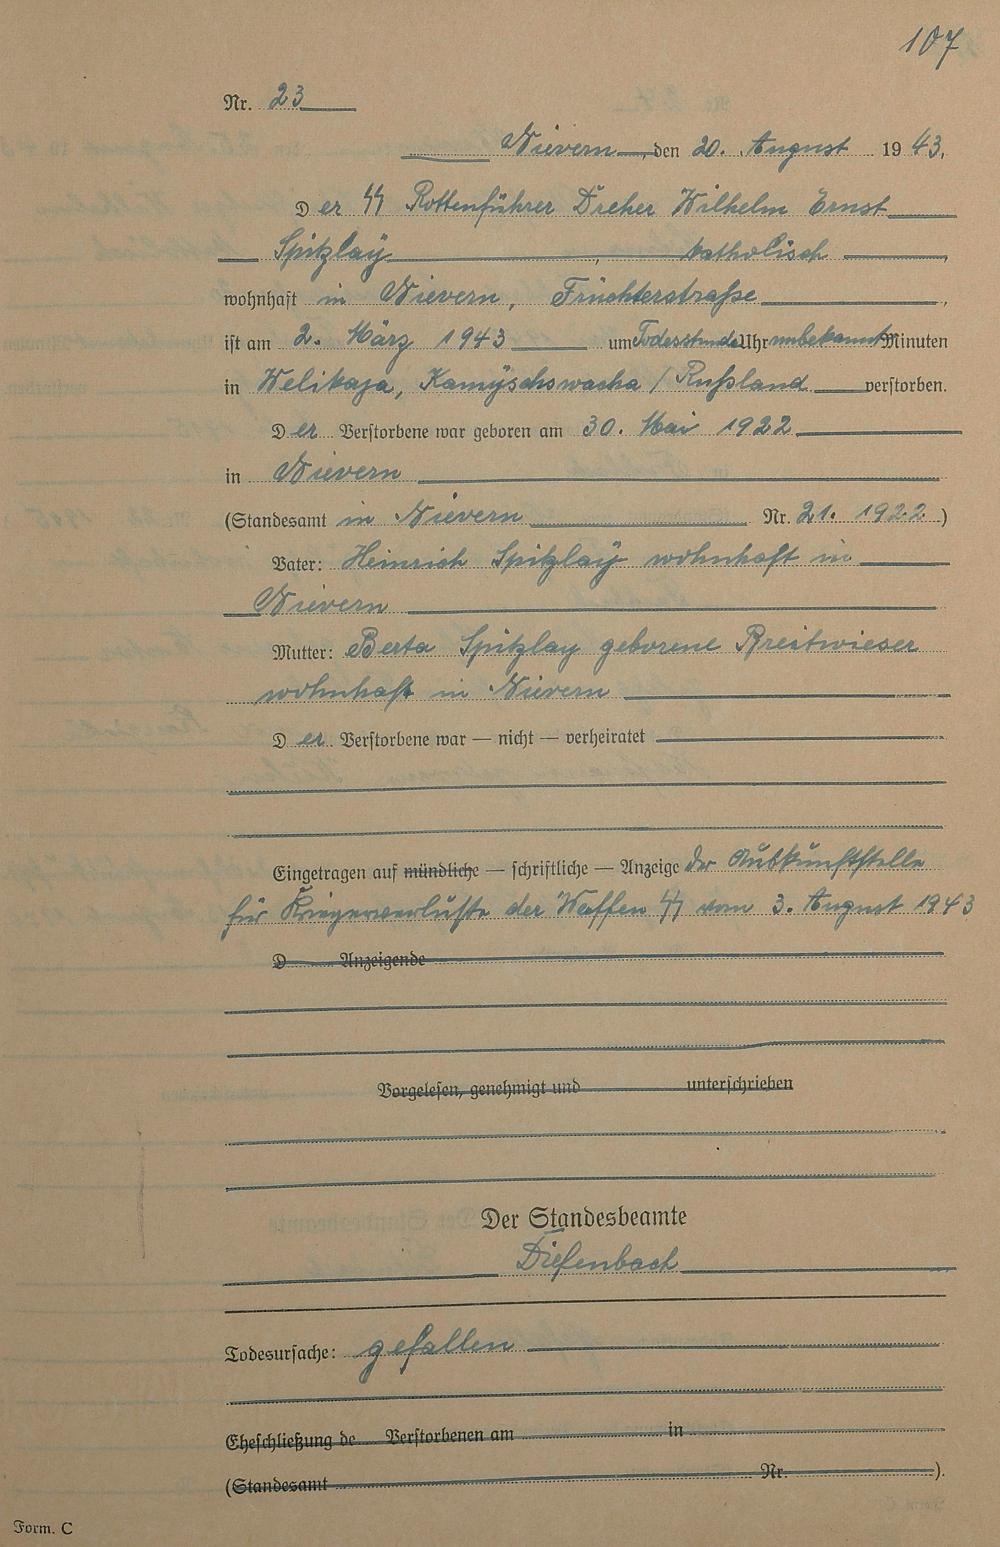 107
Nr. 23
Nievern, den 20. August 1943.
Der SS Rottenführer Dreher Wilhelm Ernst
Spitzlay, katholisch,
wohnhaft in Nievern, Früchterstraße,
ist am 2. März 1943 um Todesstunde Uhr unbekannt Minuten
in Welikaja, Kamyschswacha / Rußland verstorben.
Der Verstorbene war geboren am 30. Mai 1922
in Nievern
(Standesamt in Nievern Nr. 21. 1922)
Vater: Heinrich Spitzlaÿ wohnhaft in
Nievern
Mutter: Berta Spitzlay geborene Breitwieser
wohnhaft in Nievern
Der Verstorbene war — nicht — verheiratet
Eingetragen auf mündliche — schriftliche — Anzeige der Auskunftstelle
für Kriegerverluste der Waffen SS vom 3. August 1943
D Anzeigende
Vorgelesen, genehmigt und unterschrieben
Der Standesbeamte
Diefenbach
Todesursache: gefallen
Eheschließung de Verstorbenen am in
(Standesamt Nr. ).
Form. C